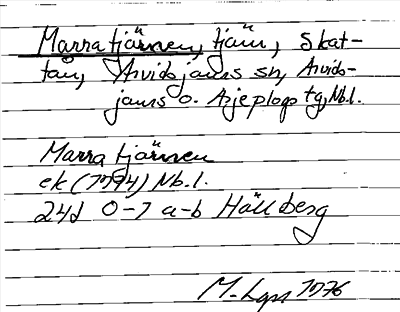 Marratjärnen, tjärn, Skat-
tån, Arvidsjaurs sn, Arvids-
jaurs o. Arjeplogs tg, Nb.l.
Marratjärnen
ek (1794) Nb.l.
24J 0-1 a-b Hällberg
1976